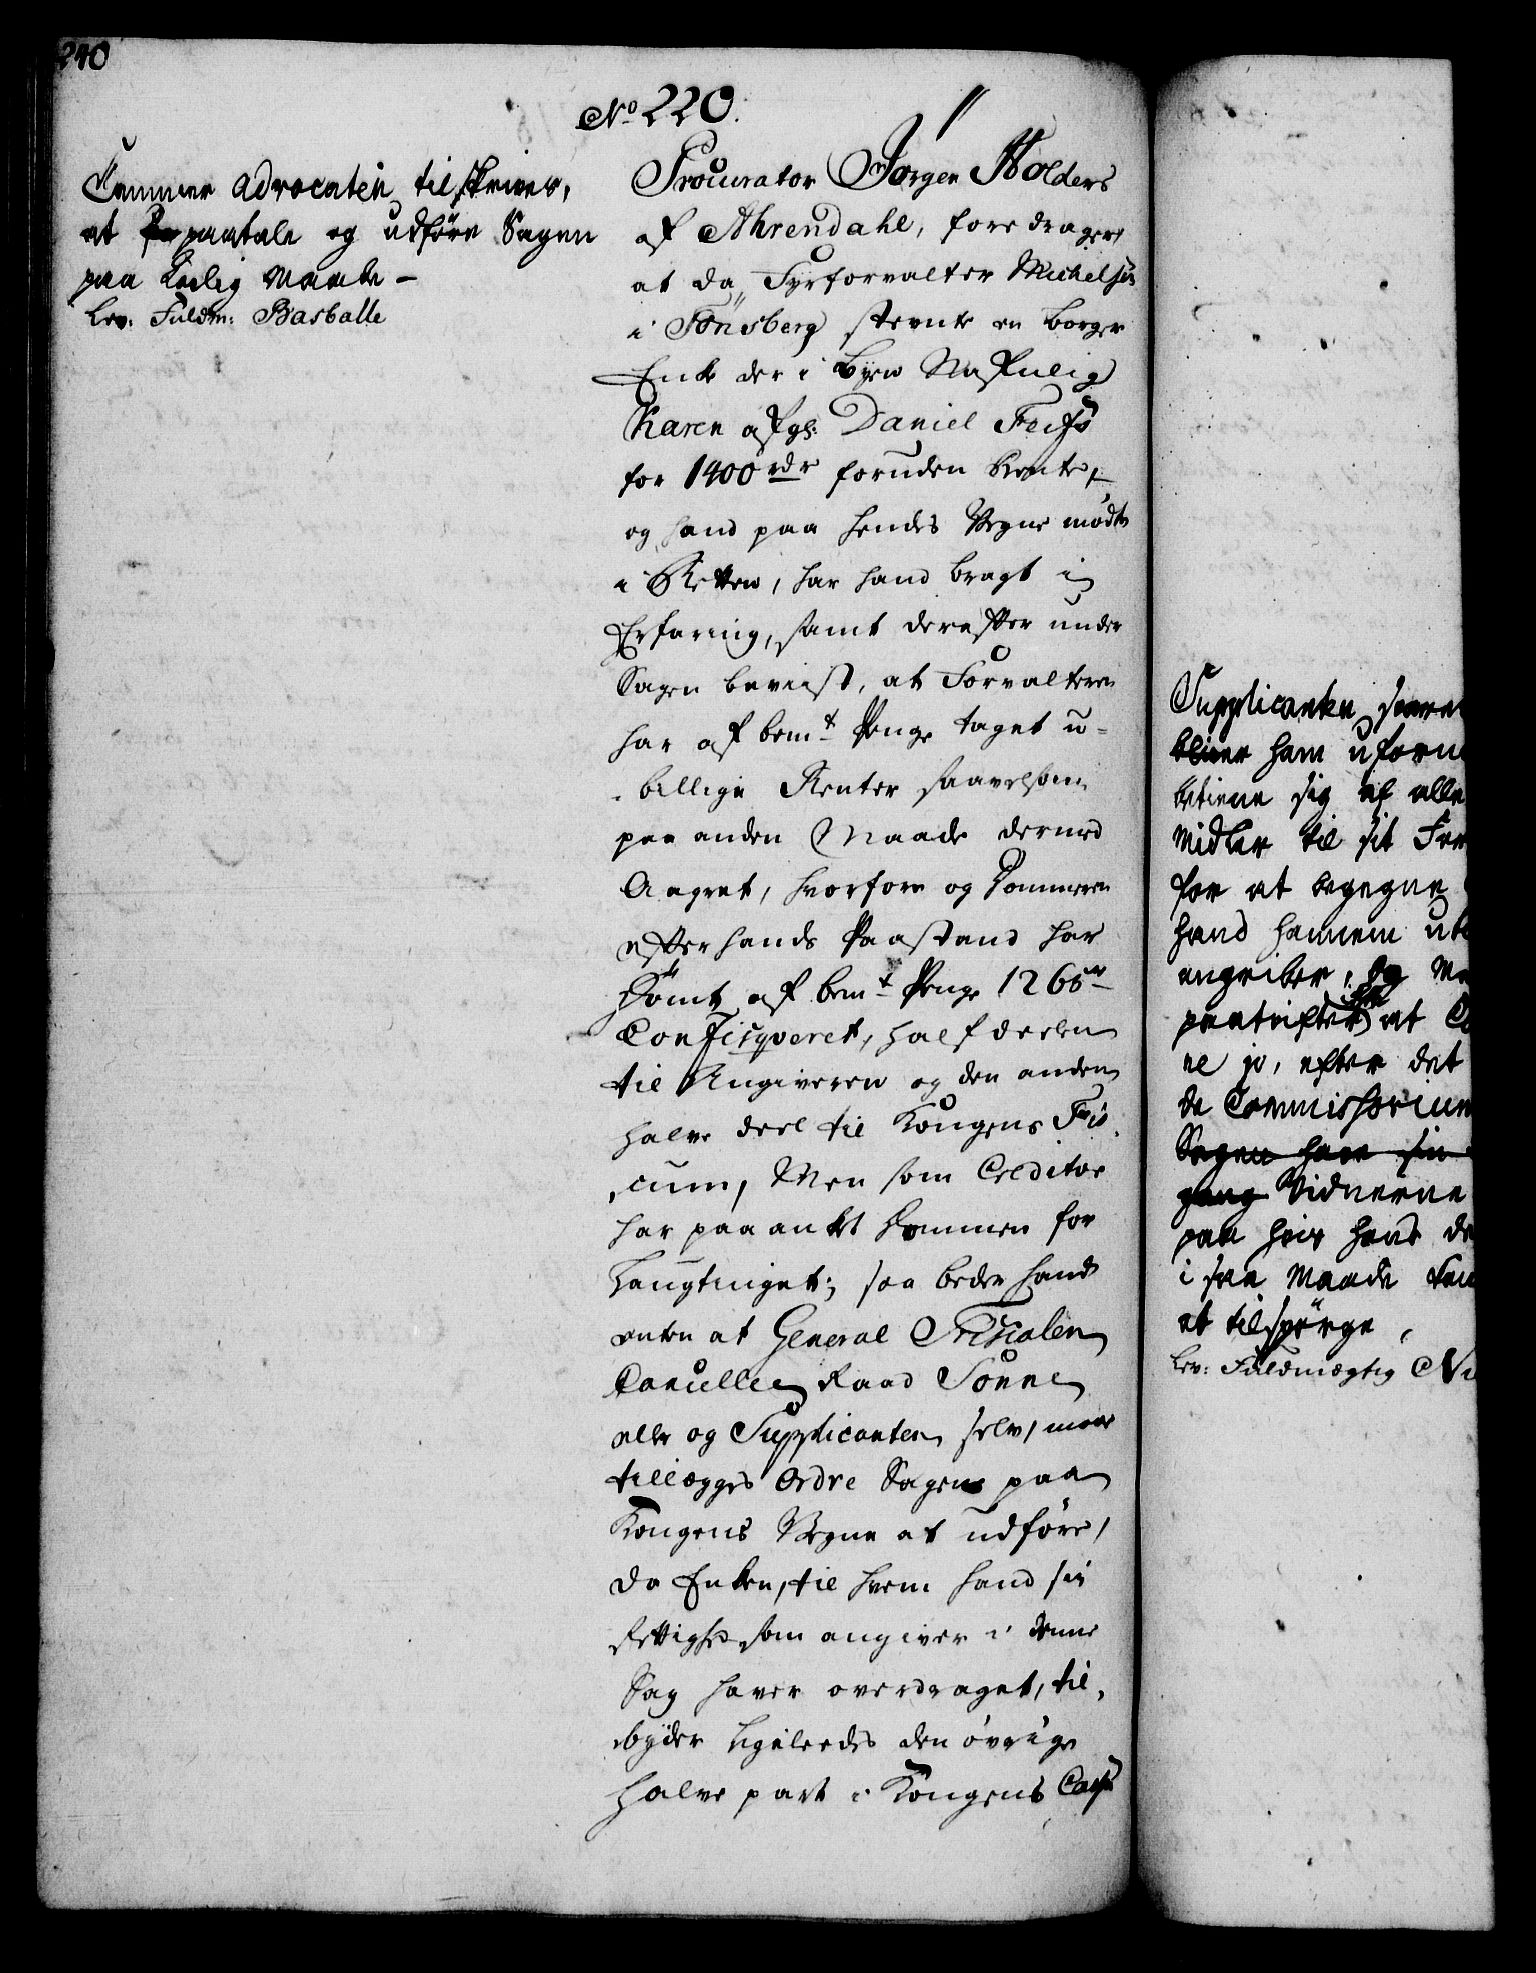 240
No 220.
Cammer Advocaten tilskrives,
at paatale og udføre Sagen
paa Lovlig Maade -
Lev: Fuldm: Basballe
Procurator Jørgen Holders
af Ahrendahl, foredrager,
at da Fyrforvalter Michelsen
i Tønsberg stevnte en borger
Enke der i Byen Nafnlig
Karen afg: Daniel
for 1400 rdr foruden Rente,
og hand paa hendes Vegne mødte
i Retten, har hand bragt i
Erfaring, samt derefter under
Sagen beviist, at Forvalteren
har af bemt Penge taget u-
billige Renter saavelsom
paa anden Maade dermed
Aagret, hvorfore og Dommeren
efter hands Paastand har
Dømt af bemt Penge 1265
Confisqveret, half deelen
til Angiveren og den anden
halve deel til Kongens Fis-
cum, Men som Creditor
har paa anket Dommen for
Laugtinget; saa beder hand
enten at General Fiscalen
Cancellie Raad Sønne
eller og Supplicanten selv, maae
tillægges Ordre Sagen paa
Kongens Vegne at udføre,
da Enken, til hvem hand sin
Rettighed som angiver i denne
Sag haver overdraget, til-
byder ligeleedes den øvrige
halve part i Kongens Cassa
Supplicanten
bliver ham uforme
betiene sig af alle
Midler til sit For
for at begegne
hand hannem
angriber, og
at
ne jo, efter det
de Commissorium
Sagen have sin
gang Vidnerne
paa hvis hand
i saa Maade
at tilspørge,
Lev: Fuldmægtig